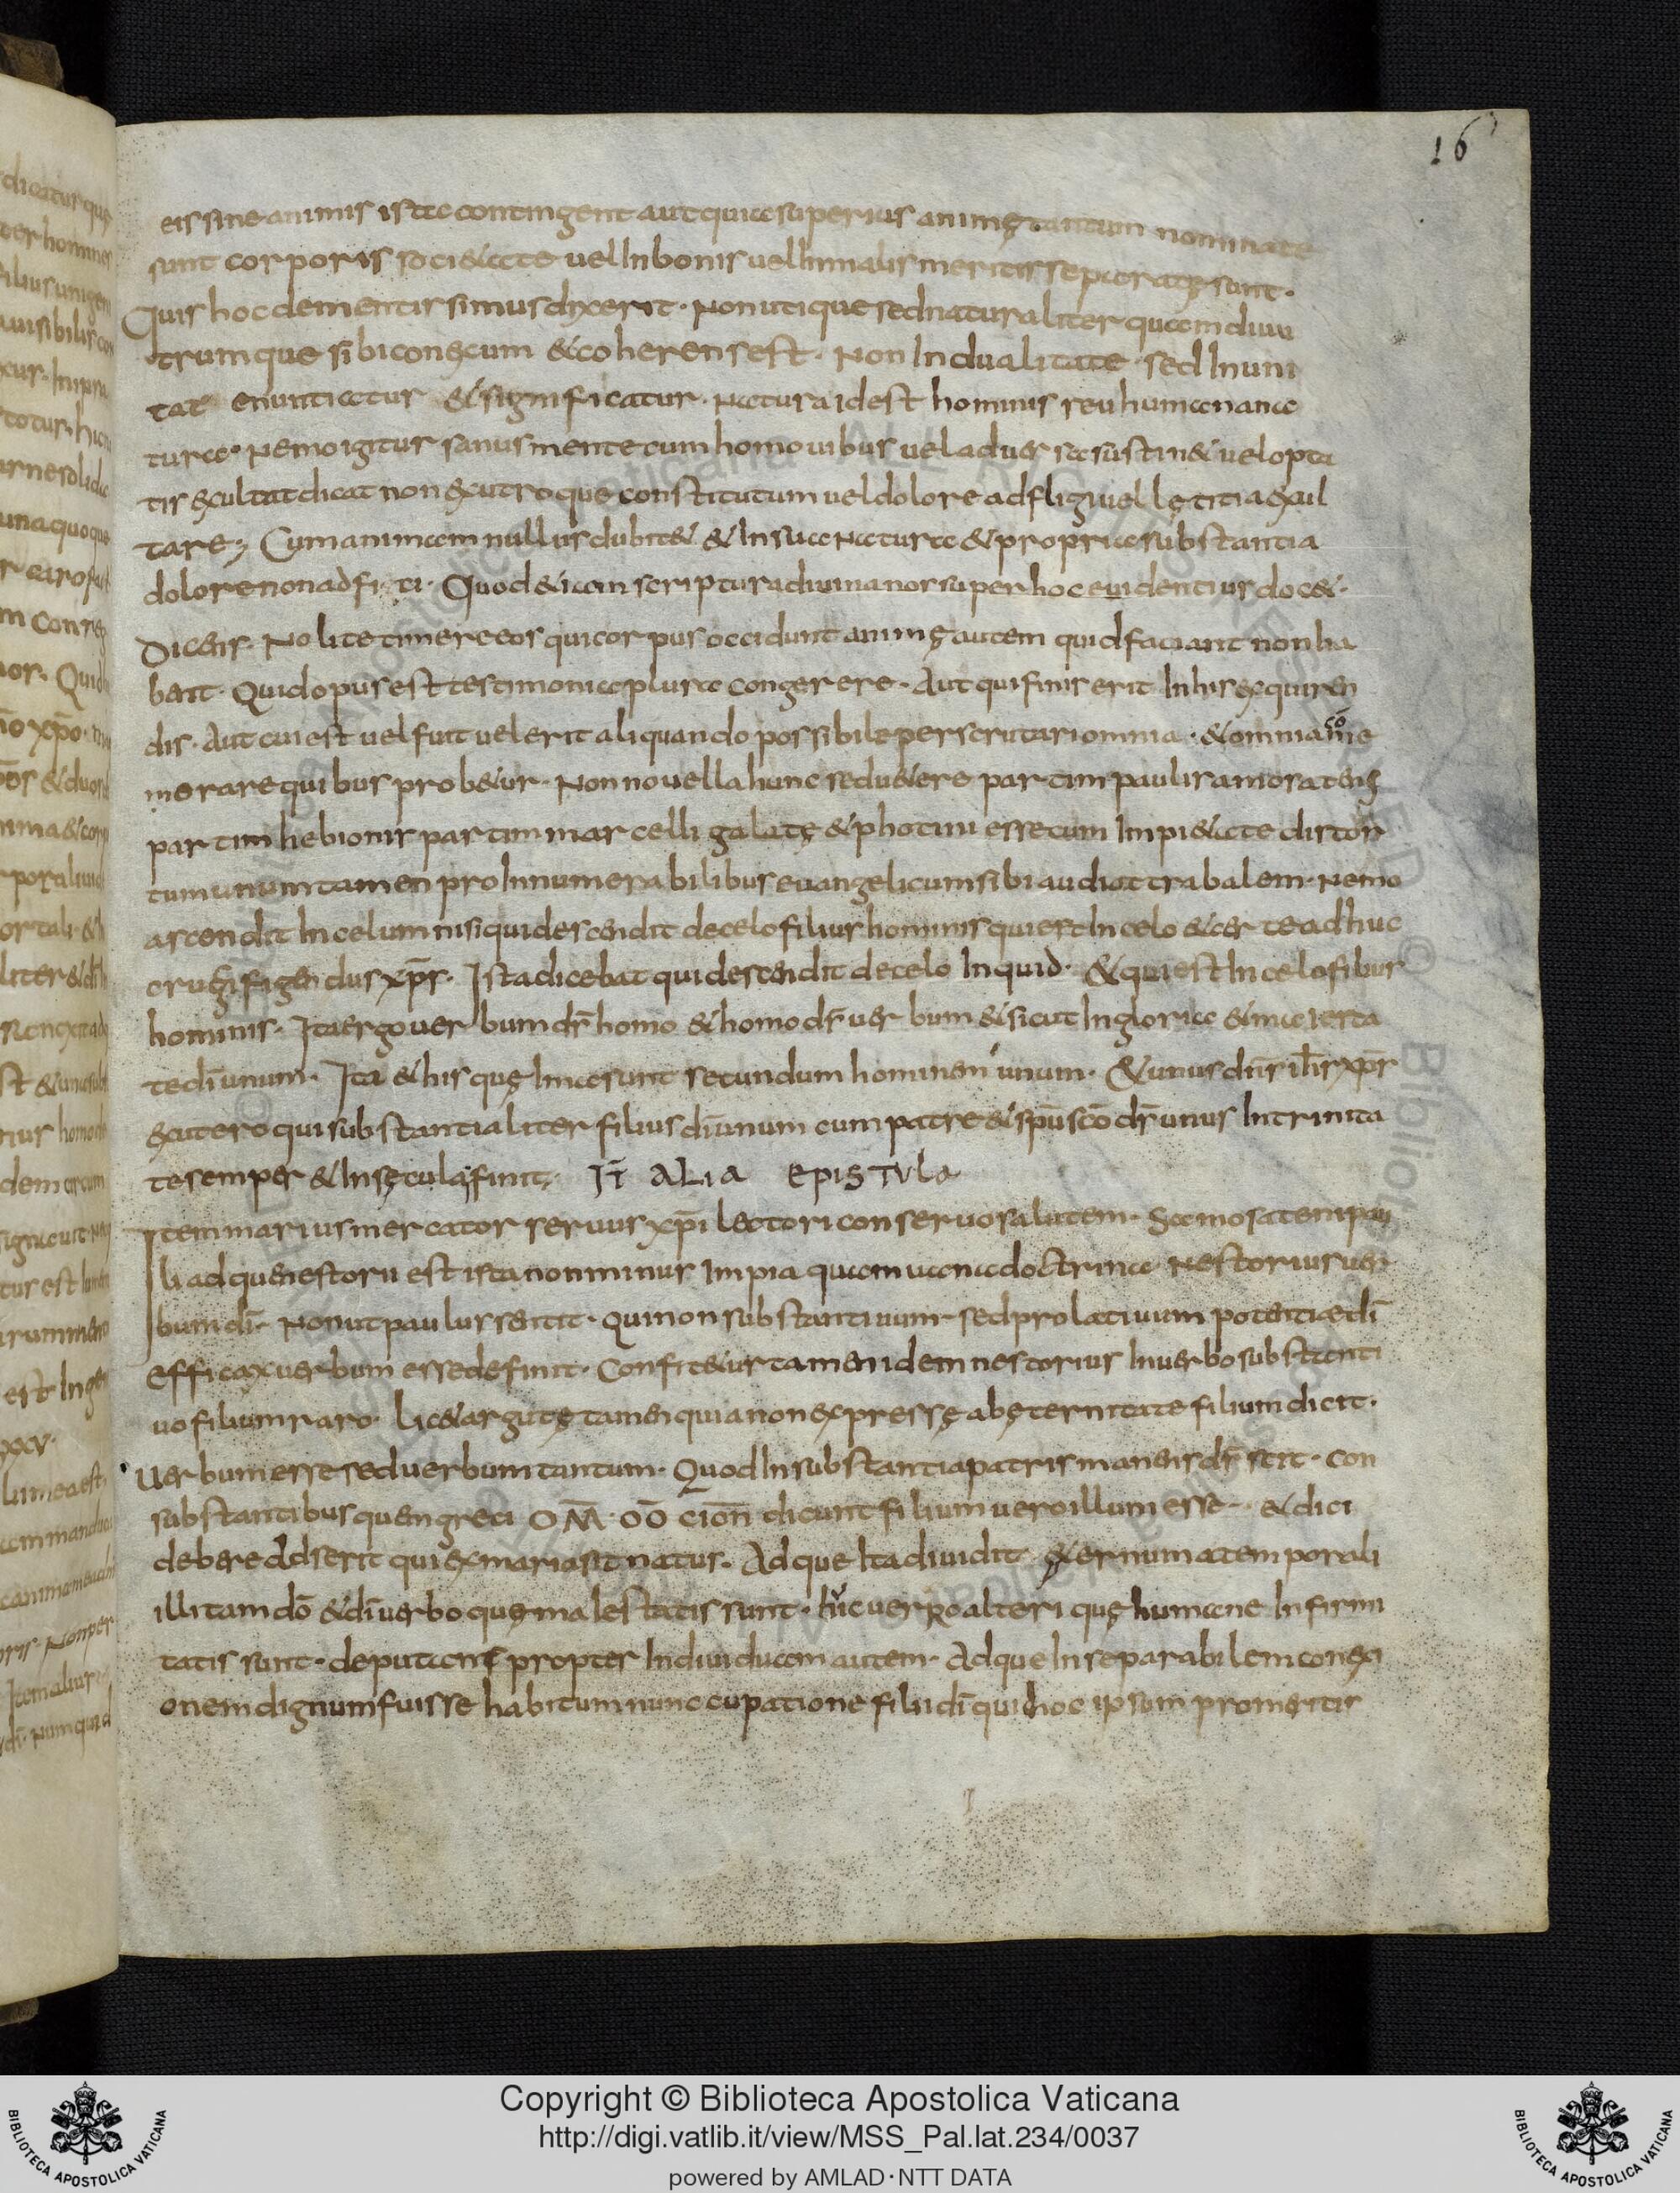 16
eis sine animis ista contingent aut quia superius animę tantum nominate
sunt corporis societate uel In bonis uel In malis meritis seperatę sunt.
Quis hoc dementissimus dixerit. Non utique sed naturaliter quamdiu u
trumque sibi conexum & coherens est. Non In dualitate sed In uni
tate enuntiatur & significatur. Natura id est hominis seu humana na
tura. Nemo igitur sanus mente cum homo uibus uel aduersa sustin& uel opta
tis exultat dicat non ex utroque constitutum uel dolore adfligi uel lętitia exul
tare; Cum animam nullus dubit& & In sua natura & propria substantia
dolore non adfici. Quod &iam scriptura diuina nos super hoc euidentius doc&.
Dicens. Nolite timere eos qui corpus occidunt animę autem quid faciant non ha
bent. Quid opus est testimonia plura congerere. Aut qui finis erit In his exquiren
dis. Aut cui est uel fuit uel erit aliquando possibile perscrutari omnia. & omnia cōme
merare quibus prob&ur. Non nouella hunc sedu&ere partim pauli samosatenę
partim hebionis partim marcelli galatę & photini esse tum Impi&ate distor
tum unum tamen pro Innumerabilibus euangelicum sibi audiat trabalem. Nemo
ascendit In celum nisi qui descendit de celo filius hominis qui est In celo & certe adhuc
crucifigendus xp̄s. Ista dicebat qui descendit de celo Inquid. & qui est In celo filius
hominis. Ita ergo uerbum dr̄ homo & homo dr̄ uerbum & sicut In gloria & maiesta
te dī unum. Ita & his quę Ima sunt secundum hominem unum. & unus dn̄s ih̄s xp̄s
ex utero qui substantialiter filius dī unum cum patre & sp̄u scō dr̄ unus In trinita
te semper & In sęcula finit. IT̄ ALIA EPISTVLA
Item marius mercator seruus xp̄i lectori conseruo salutem. Samosateni pau
li adque nestorii est ista non minus Impia quam uana doctrina Nestorius uer
bum dī. Non ut paulus sentit. Qui non substantiuum sed prolatiuum potentiae dī
efficax uerbum esse definit. Confit&ur tamen idem nestorius In uerbo substanti
uo filium raro. Lic& argutę tamen quia non expressę ab ęternitate filium dicit.
Uerbum esse sed uerbum tantum. Quod In substantia patris manens dr̄ scit. con
substantibus quem greci OM̄ OŌ CION̄ dicunt filium uero illum esse. & dici
debere adserit qui ex maria sit natus. Adque Ita diuidit ęternum a temporali
illi tam dō & dī uerbo quę maIestatis sunt. huic uero alteri quę humane Infirmi
tatis sunt. deputans propter Indiuiduam autem. Adque Inseparabilem conexi
onem dignum fuisse habitum nuncupatione filii dī qui hoc ipsum pro meritis
Copyright © Biblioteca Apostolica Vaticana
http://digi.vatlib.it/view/MSS_Pal.lat.234/0037
powered by AMLAD·NTT DATA
BIBLIOTECA APOSTOLICA VATICANA
BIBLIOTECA APOSTOLICA VATICANA